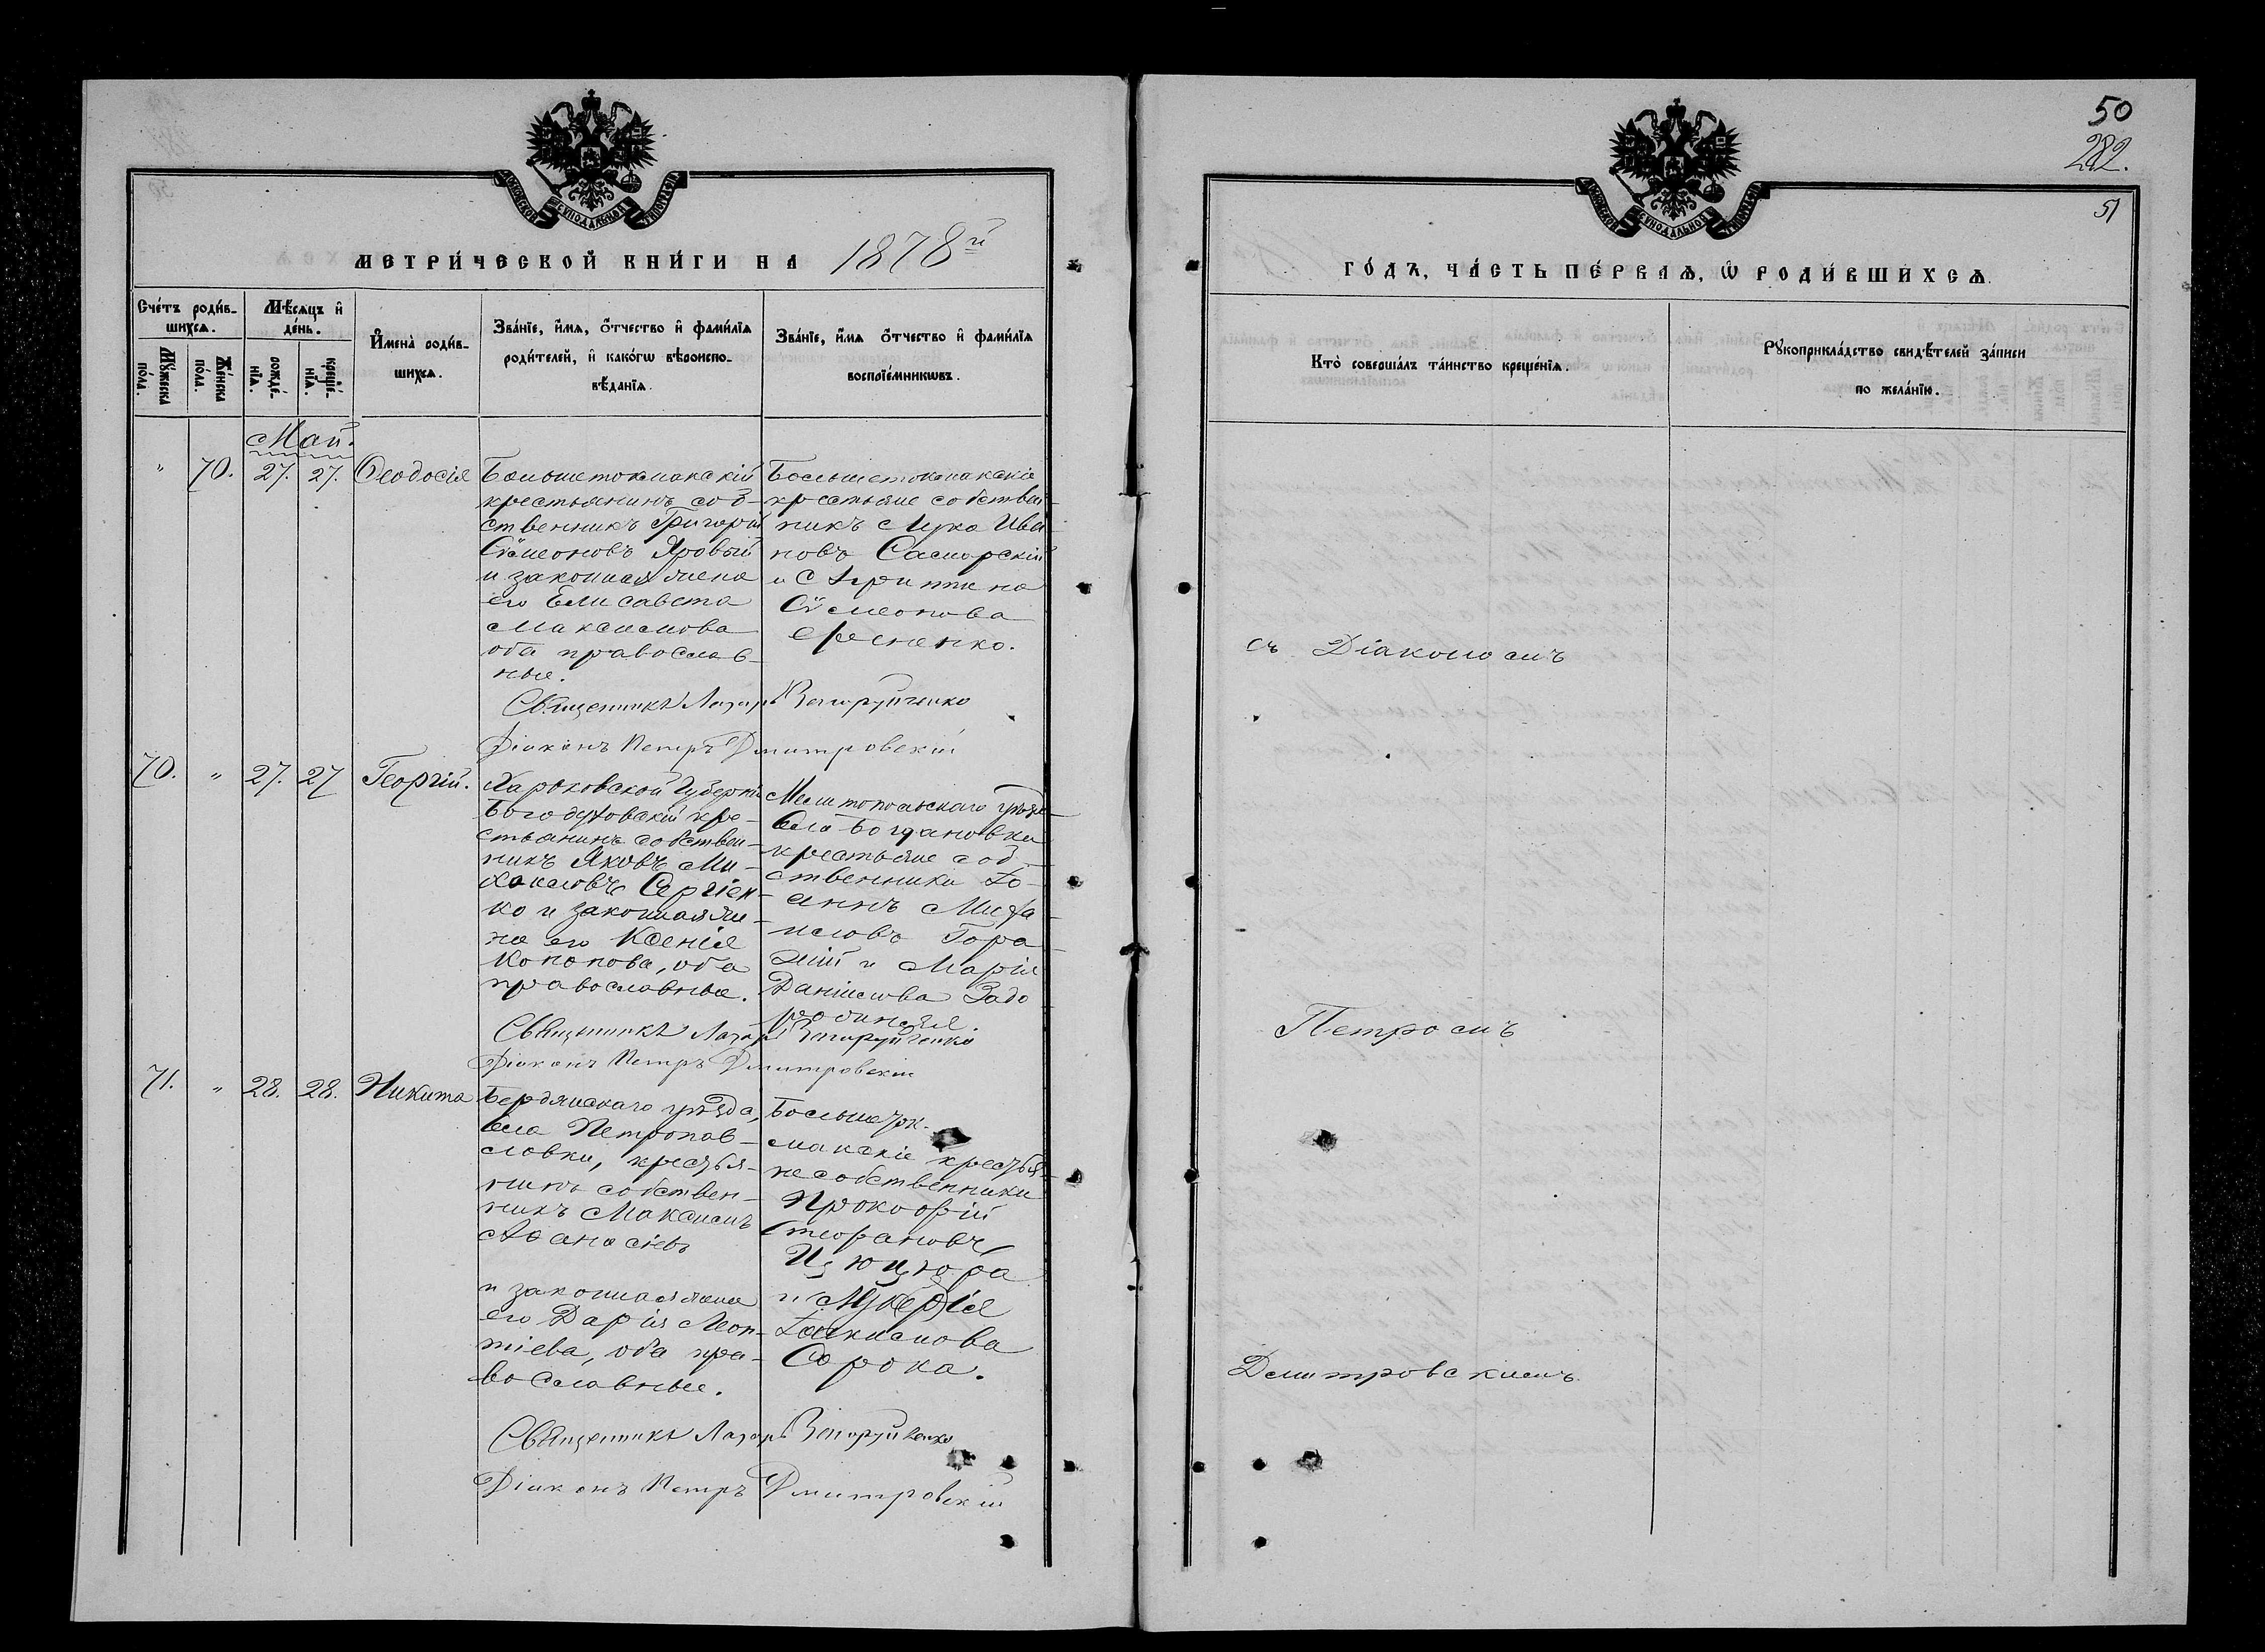 50
282.
51
МЕТРИ́ЧЕСКОЙ КНИ́ГИ НА 1878й
ГО́ДЪ, ЧА́СТЬ ПЕ́РВАѦ, Ѿ РОДИ́ВШИХСѦ.
Сче́тъ роди́в-
шихсѧ.
Мꙋ́жеска
по́ла.
Же́нска
по́ла.
Мѣ́сѧцъ и҆
де́нь.
рожде́-
нїѧ.
креще́-
нїѧ.
И҆мена̀ роди́в-
шихсѧ.
Зва́нїе, и҆́мѧ, ѻ҆́тчество и҆ фами́лїѧ
роди́телей, и҆ како́гѡ вѣроиспо-
вѣ́данїѧ.
Зва́нїе, и҆́мѧ ѻ҆́тчество и҆ фами́лїѧ
воспрїе́мникѡвъ.
Кто̀ соверша́лъ та́инство креще́нїѧ.
Рꙋкоприкла́дство свидѣ́телей за́писи
по жела́нїю.
Май.
" 70. 27. 27. Ѳеодосія
Большетокмакскій
крестьянинъ соб-
ственникъ Григорій
Сѵмеоновъ Яровый
и законная жена
его Елисавета
Максимова
оба православ-
ные.
Большетокмакскіе
крестьяне собствен-
никъ Лука Ива
новъ Самарскій
и Христина
Сѵмеонова
Священникъ Лазарь Запоруйченко
Діаконъ Петръ Дмитровскій
съ Діакономъ
70. " 27. 27 Георгій.
Харьковской Губерніи
Богодуховскій кре-
стьянинъ собствен-
никъ Яковъ Ми-
хаиловъ Сергіен-
ко и законная же-
на его Ксенія
Кононова, оба
православные.
Мелитопольскаго уѣзда
села Богдановки
крестьяне соб-
ственники Іо-
аннъ Миха
иловъ
и Марія
Даніилова
Священникъ Лазарь Запоруйченко
Діаконъ Петръ Дмитровскій
Петромъ
71. " 28. 28. Никита
Бердянскаго уѣзда,
села Петропав-
ловки, крестья-
нинъ собствен-
никъ Максимъ
Аѳанасіевъ
и законная жена
его Дарія Леон-
тіева, оба пра-
вославные.
Большеток-
макскіе крестья-
не собственники
Прокофій
Стефановъ
Цюцюра
и Гликерія
Іоакимова
Сорока.
Священникъ Лазарь Запоруйченко
Діаконъ Петръ Дмитровскій
Дмитровскимъ